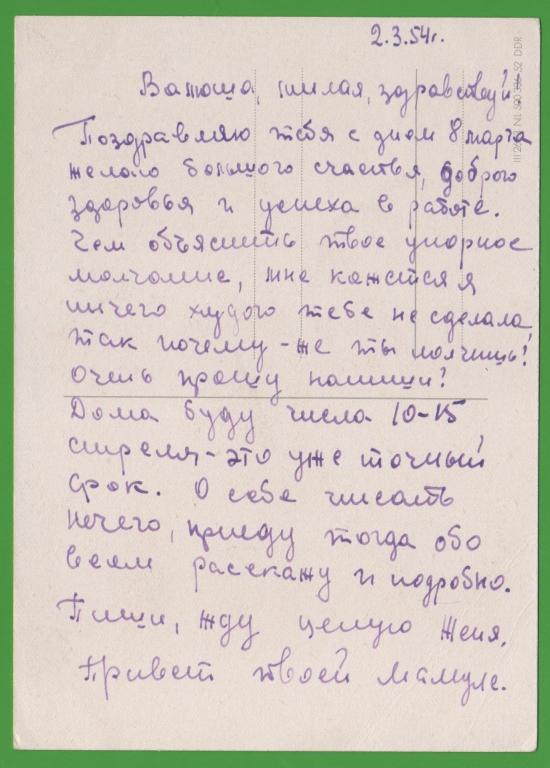 2.3.54г.
Ватюша, милая, здравствуй!
Поздравляю тебя с днем 8 марта
желаю большого счастья, доброго
здоровья и успеха в работе.
Чем объяснить твое упорное
молчание, мне кажется я
ничего худого тебе не сделала,
так почему-же ты молчишь?
Очень прошу напиши!
Дома буду числа 10-15
апреля - это уже точный
срок. О себе писать
нечего, приеду тогда обо
всем расскажу и подробно.
Пиши, жду целую Женя.
Привет твоей мамуле.
DDR